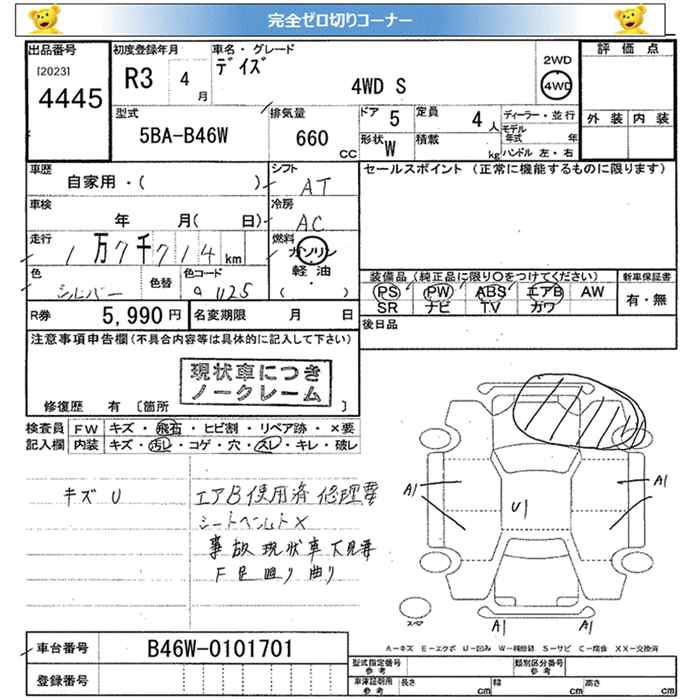 完全ゼロ切りコーナー
出品番号
[2023]
4445
初度登録年月
R3 4月
車名・グレード
デイズ
4WD S
2WD
4WD
評価点
外装 内装
型式
5BA-B46W
排気量
660 CC
ドア 5
定員 4人
形状 W
積載 kg
ディーラー・並行
モデル年式 年
ハンドル 左・右
車歴
自家用・( )
シフト
AT
セールスポイント (正常に機能するものに限ります)
車検
年 月( 日)
冷房
AC
走行
1万7千714km
燃料
ガソリン
軽油
・
( )
色
シルバー
色替
色コード
装備品(純正品に限り○をつけてください)
新車保証書
PS PW ABS エアB AW
SR ナビ TV カワ
有・無
R券 5,990円
名変期限 月 日
後日品
注意事項申告欄(不具合内容等は具体的に記入して下さい)
現状車につき
ノークレーム
修復歴 有 〔箇所 〕
検査員記入欄
FW キズ・飛石・ヒビ割・リペア跡・×要
内装 キズ・汚レ・コゲ・穴・スレ・キレ・破レ
キズ U
エアB使用済 修理要
シートベルト×
事故現状車 下見要
F足回り曲り
A1
A1
U1
A1
A1
スペア
A−キズ E−エクボ U−凹み W−補修跡 S−サビ C−腐食 XX−交換済
車台番号
B46W-0101701
登録番号
型式指定番号 参考
類別区分番号 参考
車庫証明用 参考
長さ cm
幅 cm
高さ cm